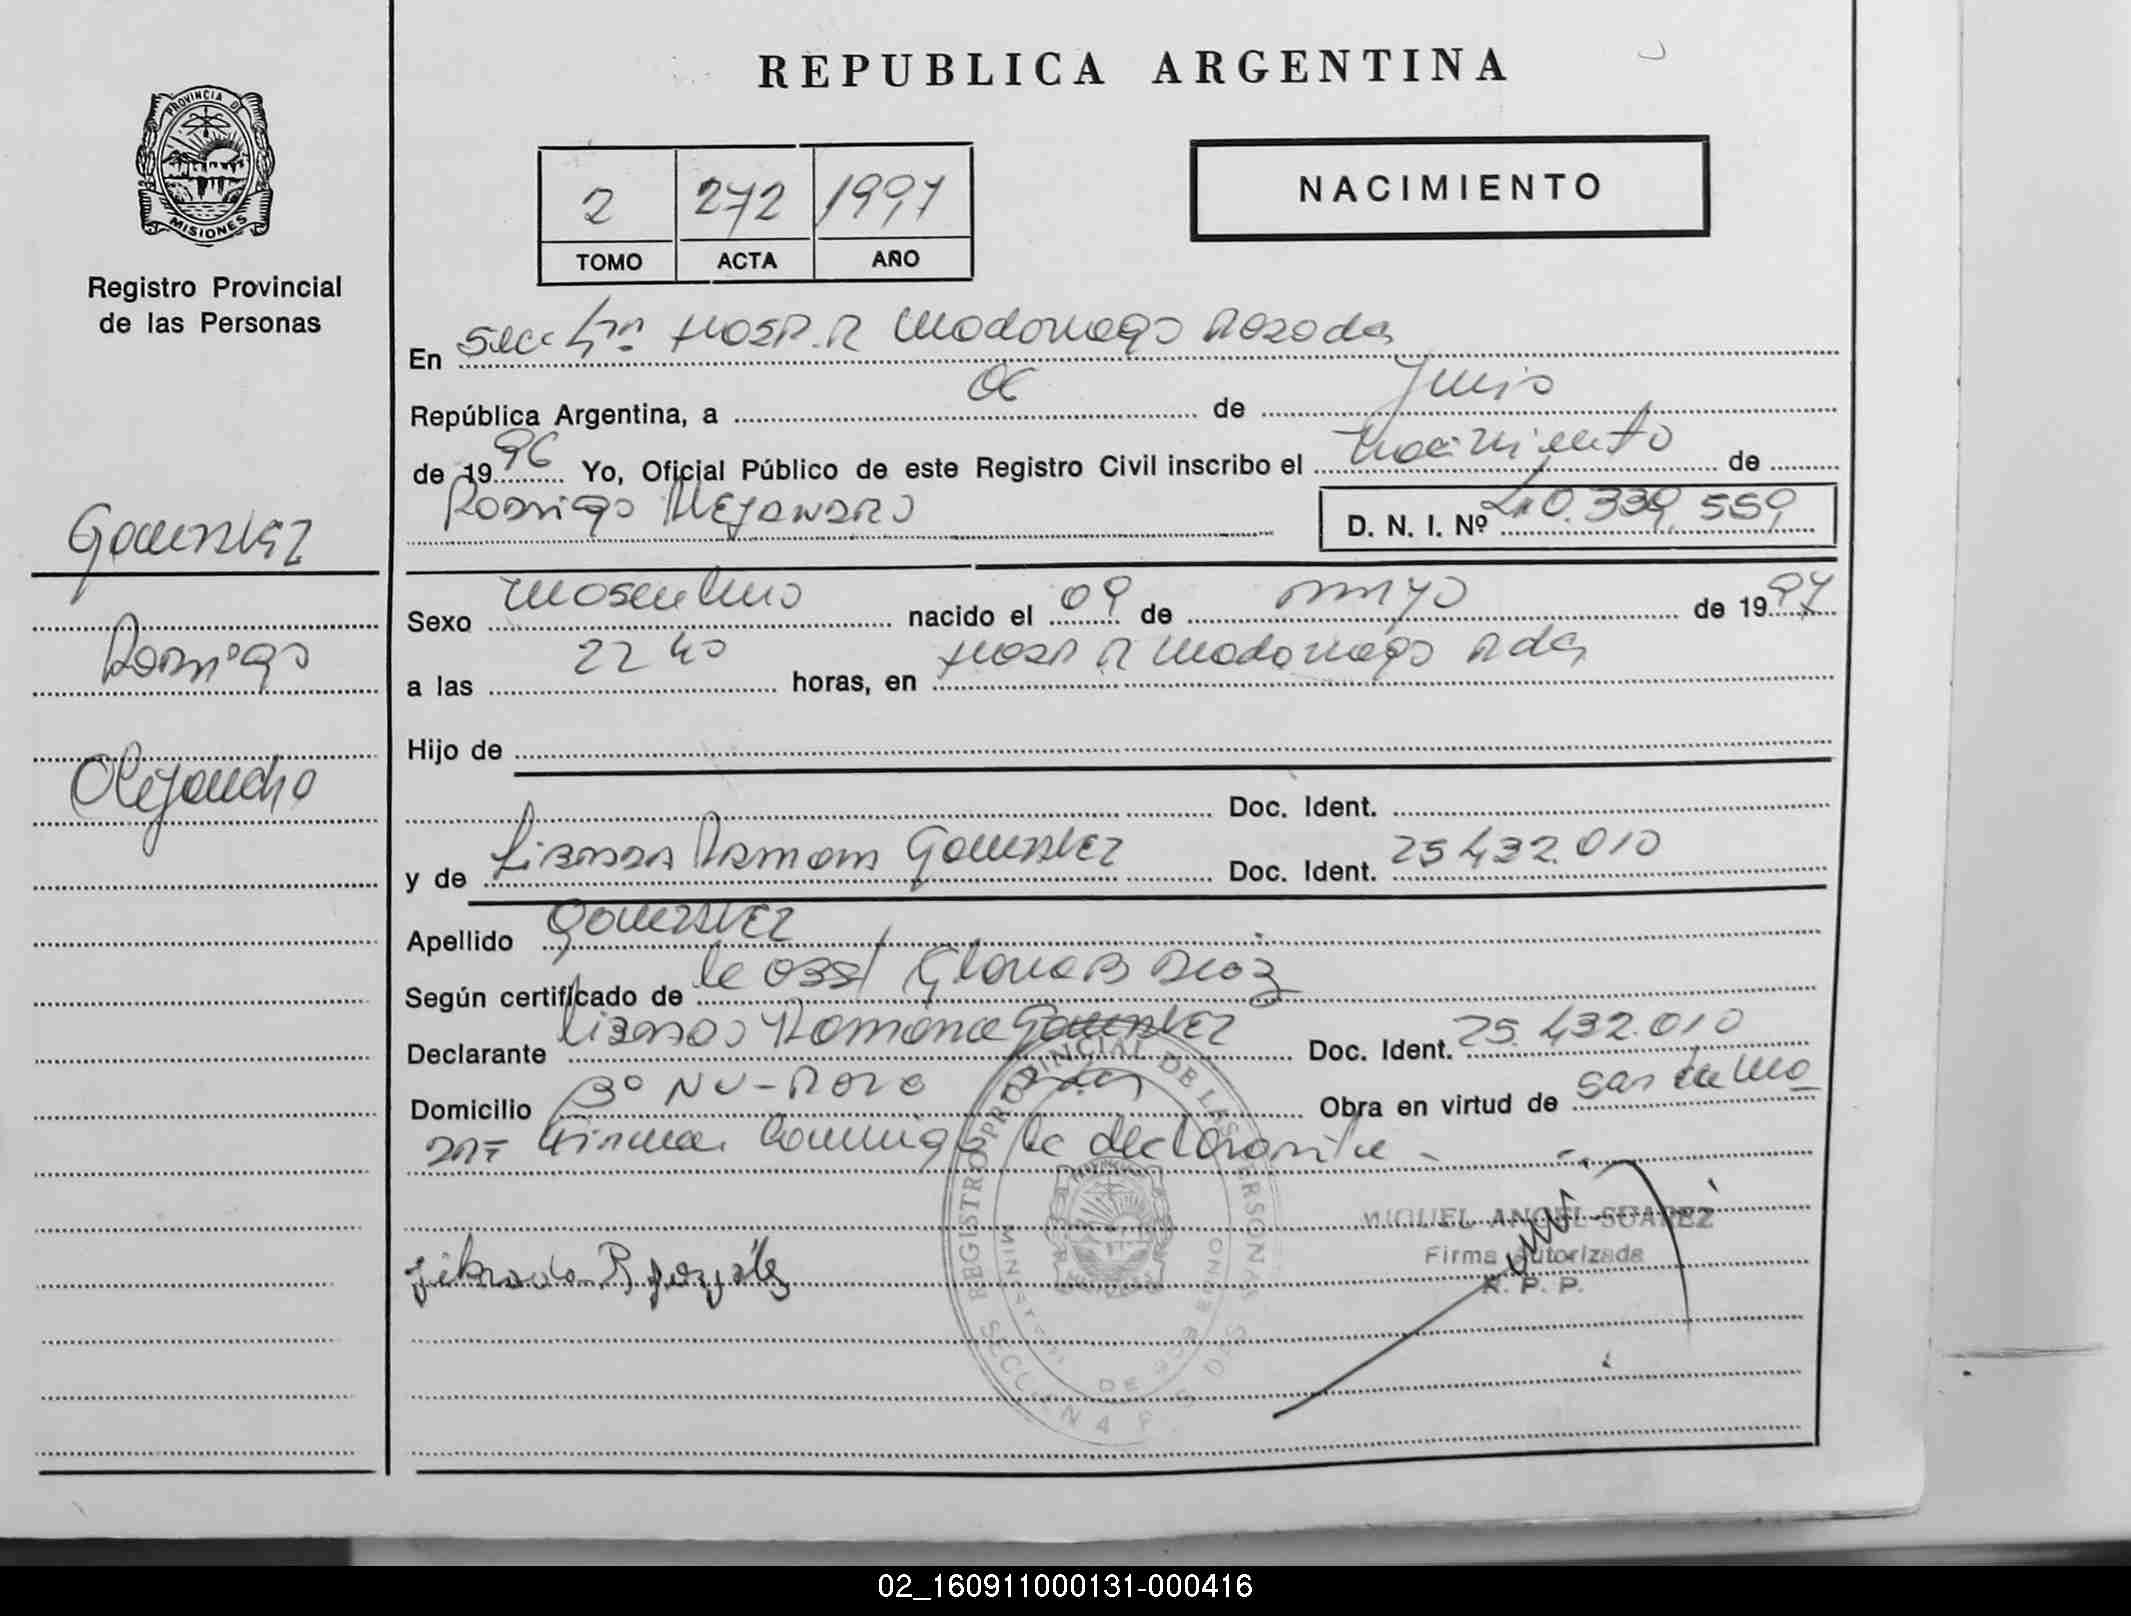 REPUBLICA ARGENTINA
PROVINCIA DE
MISIONES
Registro Provincial
de las Personas
2 272 1997
TOMO ACTA AÑO
NACIMIENTO
En Secc 4ta Hosp. R Madariaga Posadas
República Argentina, a 06 de Junio
de 1996 Yo, Oficial Público de este Registro Civil inscribo el nacimiento de
Rodrigo Alejandro
D. N. I. Nº 40.339.559
Gonzalez
Rodrigo
Alejandro
Sexo masculino nacido el 09 de mayo de 1997
a las 22 40 horas, en Hosp R Madariaga Pdas
Hijo de
Doc. Ident.
y de Librada Ramona Gonzalez Doc. Ident. 25.432.010
Apellido Gonzalez
Según certificado de la Obst Gloria B
Declarante Librada Ramona Gonzalez Doc. Ident. 25.432.010
Domicilio Bº Pdas Obra en virtud de
Firma conmigo la declarante -
MIGUEL ANGEL SUAREZ
Firma Autorizada
R. P. P.
Librada R gonzález
REGISTRO PROVINCIAL DE LAS PERSONAS
02_160911000131-000416